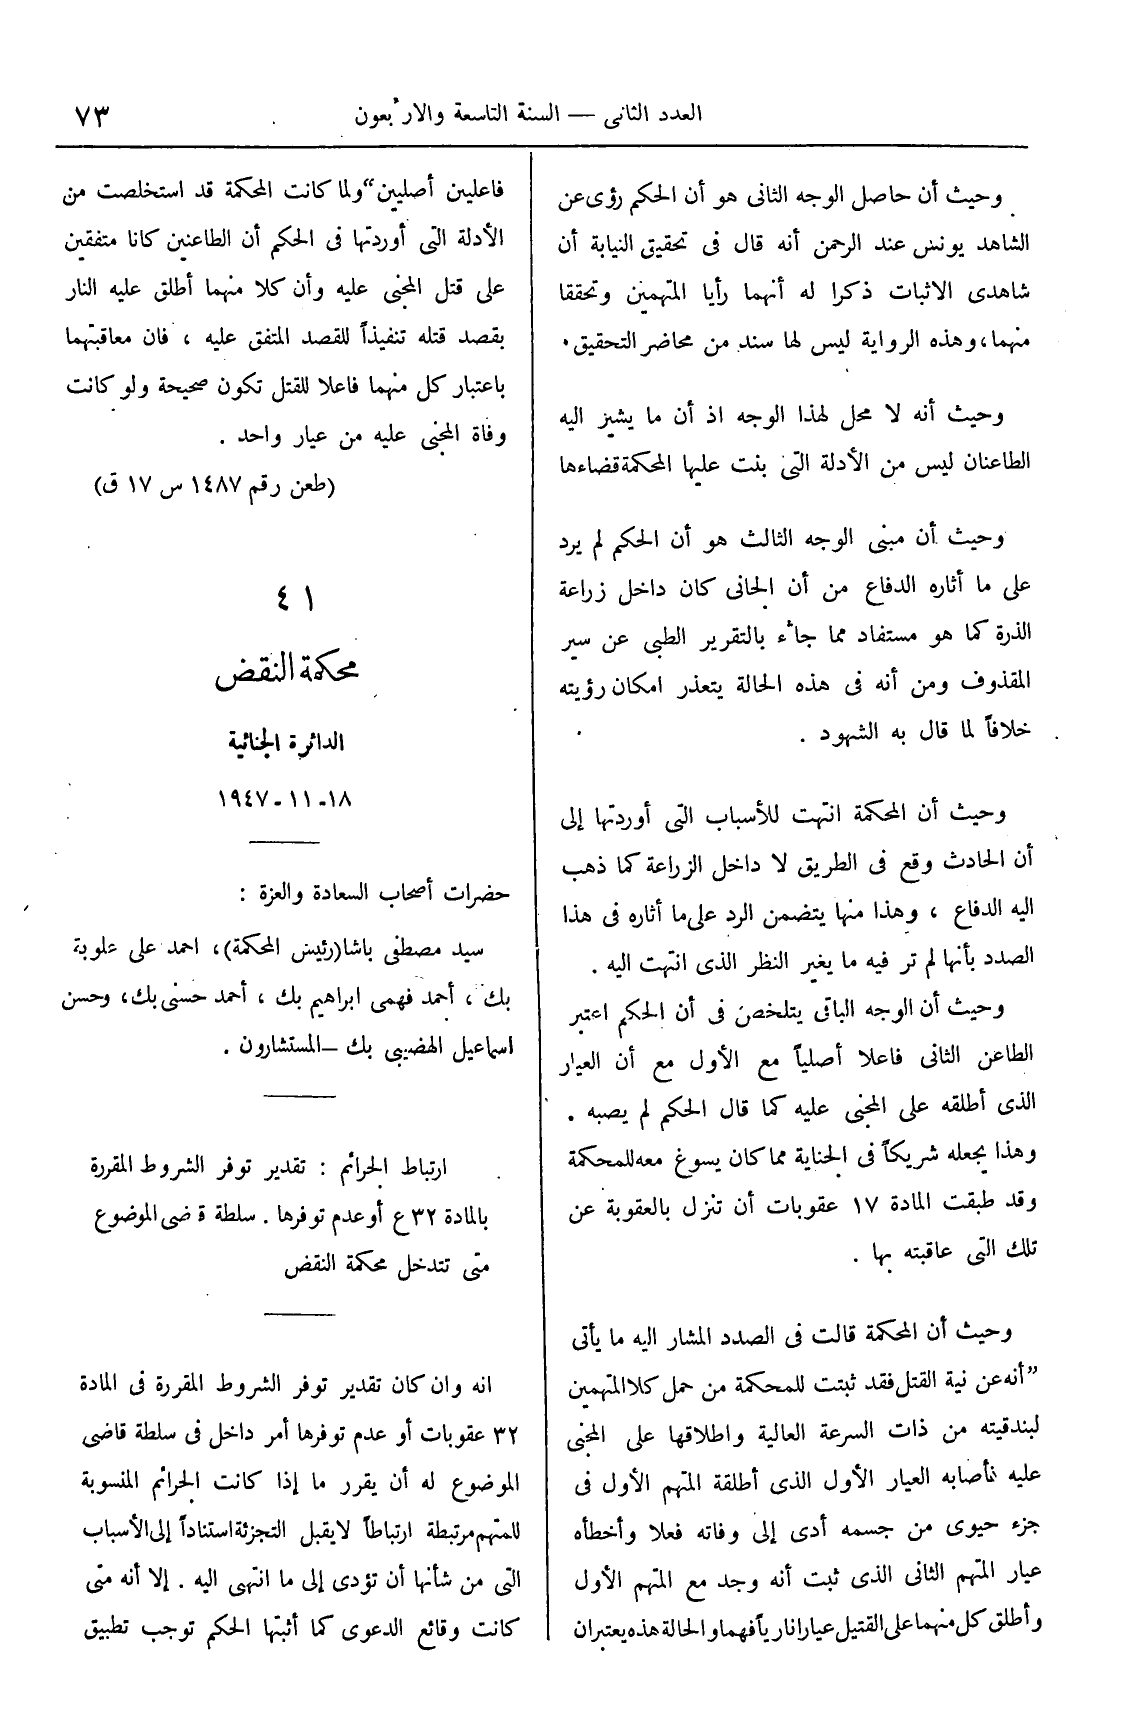 العدد الثانى — السنة التاسعة والاربعون
٧٣
وحيث أن حاصل الوجه الثانى هو أن الحكم رؤى عن
الشاهد يونس عند الرحمن أنه قال فى تحقيق النيابة أن
شاهدى الاثبات ذكرا له أنهما رأيا المتهمين وتحققا
منهما، وهذه الرواية ليس لها سند من محاضر التحقيق.
وحيث أنه لا محل لهذا الوجه اذ أن ما يشيز اليه
الطاعنان ليس من الأدلة التى بنت عليها المحكمة قضاءها
وحيث أن مبنى الوجه الثالث هو أن الحكم لم يرد
على ما أثاره الدفاع من أن الجانى كان داخل زراعة
الذرة كما هو مستفاد مما جاء بالتقرير الطبى عن سير
المقذوف ومن أنه فى هذه الحالة يتعذر امكان رؤيته
خلافاً لما قال به الشهود .
وحيث أن المحكمة انتهت للأسباب التى أوردتها إلى
أن الحادث وقع فى الطريق لا داخل الزراعة كما ذهب
اليه الدفاع ، وهذا منها يتضمن الرد على ما أثاره فى هذا
الصدد بأنها لم تر فيه ما يغير النظر الذى انتهت اليه .
وحيث أن الوجه الباقى يتلخص فى أن الحكم اعتبر
الطاعن الثانى فاعلا أصلياً مع الأول مع أن العيار
الذى أطلقه على المجنى عليه كما قال الحكم لم يصبه .
وهذا يجعله شريكاً فى الجناية مما كان يسوغ معه للمحكمة
وقد طبقت المادة ١٧ عقوبات أن تنزل بالعقوبة عن
تلك التى عاقبته بها .
وحيث أن المحكمة قالت فى الصدد المشار اليه ما يأتى
”أنه عن نية القتل فقد ثبتت للمحكمة من حمل كلا المتهمين
لبندقيته من ذات السرعة العالية واطلاقها على المجنى
عليه فأصابه العيار الأول الذى أطلقة المتهم الأول فى
جزء حيوى من جسمه أدى إلى وفاته فعلا وأخطأه
عيار المتهم الثانى الذى ثبت أنه وجد مع المتهم الأول
وأطلق كل منهما على القتيل عيارا نارياً فهما والحالة هذه يعتبران
فاعليين أصليين“ ولما كانت المحكمة قد استخلصت من
الأدلة التى أوردتها فى الحكم أن الطاعنين كانا متفقين
على قتل المجنى عليه وأن كلا منهما أطلق عليه النار
بقصد قتله تنفيذاً للقصد المتفق عليه ، فان معاقبتهما
باعتبار كل منهما فاعلا للقتل تكون صحيحة ولو كانت
وفاة المجنى عليه من عيار واحد .
(طعن رقم ١٤٨٧ س ١٧ ق)
٤١
محكمة النقض
الدائرة الجنائية
١٨-١١-١٩٤٧
حضرات أصحاب السعادة والعزة :
سيد مصطفى باشا (رئيس المحكمة)، احمد على علوبة
بك ، أحمد فهمى ابراهيم بك ، أحمد حسنى بك، وحسن
اسماعيل الهضيبى بك — المستشارون .
ارتباط الجرائم : تقدير توفر الشروط المقررة
بالمادة ٣٢ ع أو عدم توفرها . سلطة قضى الموضوع
متى تتدخل محكمة النقض
انه وان كان تقدير توفر الشروط المقررة فى المادة
٣٢ عقوبات أو عدم توفرها أمر داخل فى سلطة قاضى
الموضوع له أن يقرر ما إذا كانت الجرائم المنسوبة
للمتهم مرتبطة ارتباطاً لا يقبل التجزئة استناداً إلى الأسباب
التى من شأنها أن تؤدى إلى ما انتهى اليه . إلا أنه متى
كانت وقائع الدعوى كما أثبتها الحكم توجب تطبيق